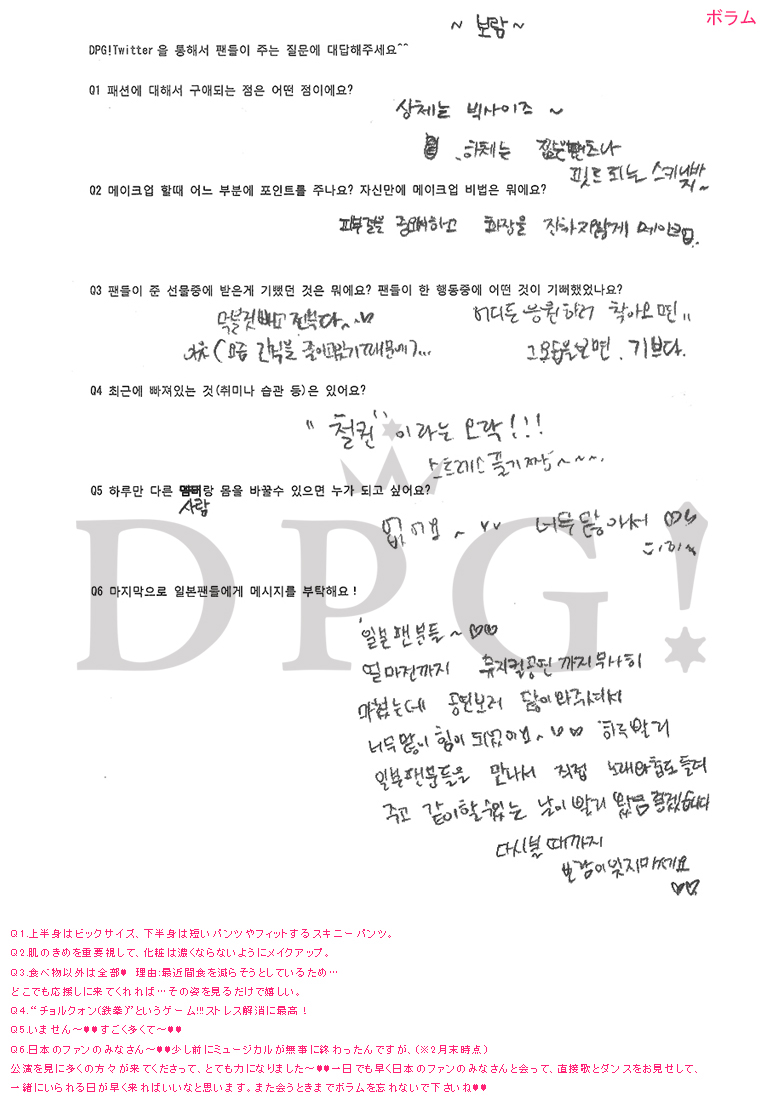 ~ 보람 ~
ボラム
DPG!Twitter을 통해서 팬들이 주는 질문에 대답해주세요^^
Q1 패션에 대해서 구애되는 점은 어떤 점이에요?
상체는 빅사이즈 ~
하체는 짧은팬츠나
핏트되는 스키니바지~
Q2 메이크업 할때 어느 부분에 포인트를 주나요? 자신만에 메이크업 비법은 뭐에요?
피부결을 중요시하고 화장을 진하지않게 메이크업.
Q3 팬들이 준 선물중에 받은게 기뻤던 것은 뭐에요? 팬들이 한 행동중에 어떤 것이 기뻐했었나요?
먹을것빼고 전부다~♥ 어디든 응원하러 찾아오면"
이유(요즘 간식을 줄이고있기때문에)... 그모습을보면. 기쁘다.
Q4 최근에 빠져있는 것(취미나 습관 등)은 있어요?
"철권" 이라는 오락!!!
스트레스풀기짱~~~.
Q5 하루만 다른 멤버랑 몸을 바꿀수 있으면 누가 되고 싶어요?
사람
없어요~♥♥ 너무많아서 ♡♡
DPG!
Q6 마지막으로 일본팬들에게 메시지를 부탁해요!
일본팬분들~♡♡
얼마전까지 뮤지컬공연까지무사히
마쳤는데 공연보러 많이와주셔서
너무많이 힘이 되었어요~♡♡ 하루빨리
일본팬분들을 만나서 직접 노래와춤도들려
주고 같이할수있는 날이빨리 왔음 좋겠습니다
다시볼때까지
보람이잊지마세요
♡♡
Q1.上半身はビックサイズ、下半身は短いパンツやフィットするスキニーパンツ。
Q2.肌のきめを重要視して、化粧は濃くならないようにメイクアップ。
Q3.食べ物以外は全部♥ 理由:最近間食を減らそうとしているため…
どこでも応援しに来てくれれば…その姿を見るだけで嬉しい。
Q4."チョルクォン(鉄拳)"というゲーム!!!ストレス解消に最高!
Q5.いません~♥♥すごく多くて~♥♥
Q6.日本のファンのみなさん~♥♥少し前にミュージカルが無事に終わったんですが、(※2月末時点)
公演を見に多くの方々が来てくださって、とても力になりました~♥♥一日でも早く日本のファンのみなさんと会って、直接歌とダンスをお見せして、
一緒にいられる日が早く来ればいいなと思います。また会うときまでボラムを忘れないで下さいね♥♥